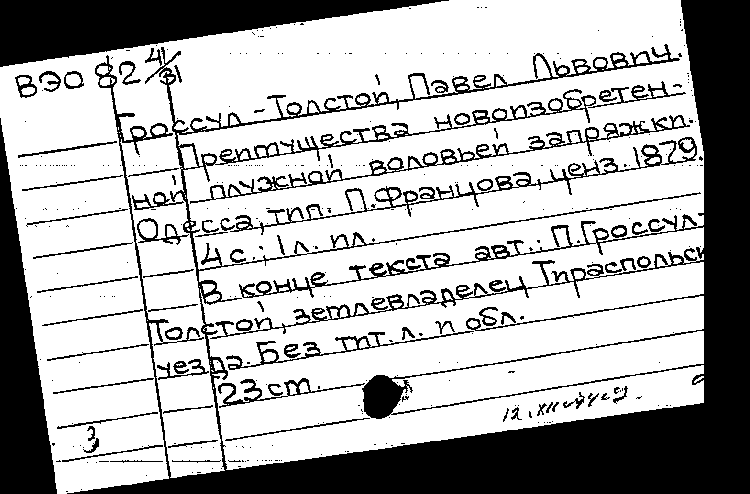 ВЭО 82 41/31
Гроссул-Толстой, Павел Львович.
Преимущества новоизобретен-
ной плужной воловьей запряжки.
Одесса, тип. П. Францова, ценз. 1879.
4 с.; 1 л. пл.
В конце текста авт.: П. Гроссул-
Толстой, землевладелец Тираспольск
уезда. Без тит. л. и обл.
23 cm.
3